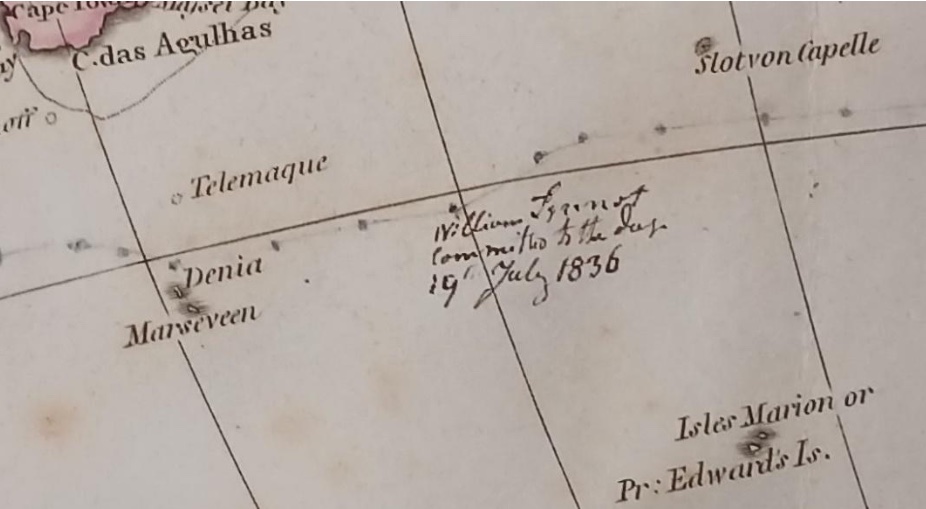 Cape Tow
C. das Agulhas
Slot von Capelle
Telemaque
William
committed to the deep
19th July 1836
Denia
Marseveen
Isles Marion or
Pr: Edward's Is.